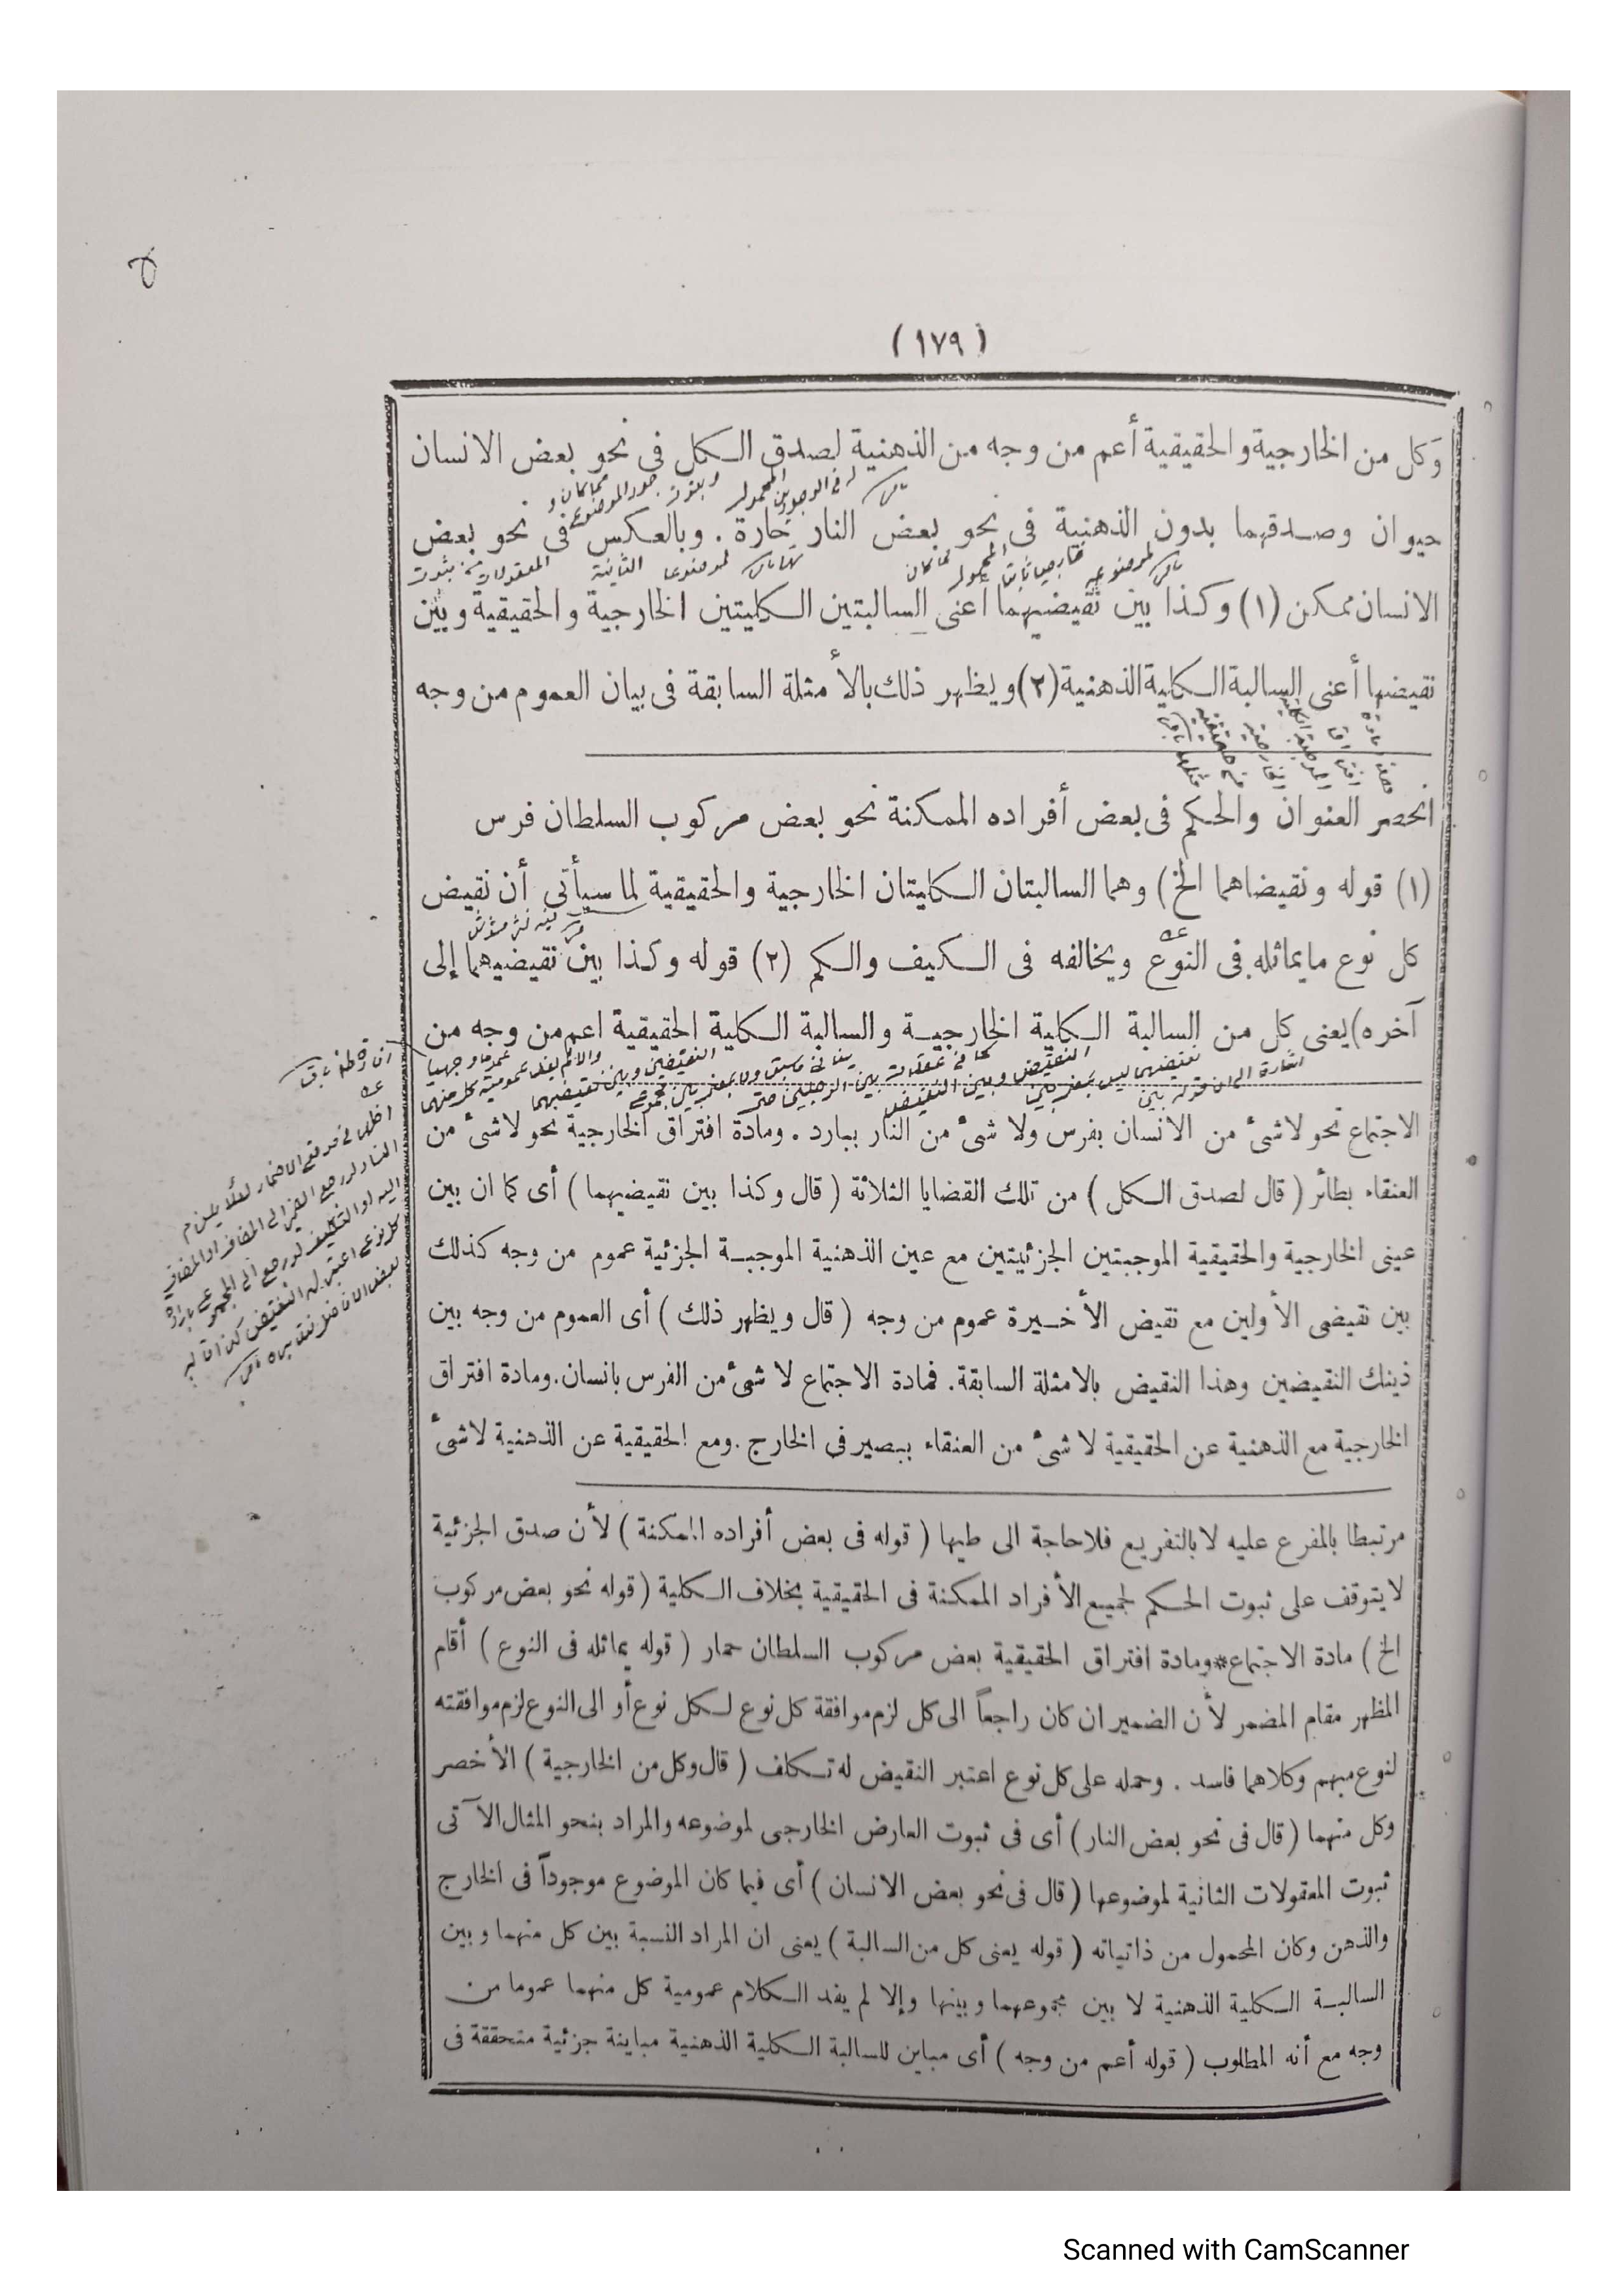 (١٧٩)
وكل من الخارجية والحقيقية أعم من وجه من الذهنية لصدق الكل فى نحو بعض الانسان
حيوان وصدقهما بدون الذهنية فى نحو بعض النار حارة . وبالعكس فى نحو بعض
الانسان ممكن (١) وكذا بين نقيضيهما أعنى السالبتين الكليتين الخارجية والحقيقية وبين
نقيضها أعنى السالبة الكلية الذهنية (٢) ويظهر ذلك بالأمثلة السابقة فى بيان العموم من وجه
انحصر العنوان والحكم فى بعض أفراده الممكنة نحو بعض مركوب السلطان فرس
(١) قوله ونقيضاهما الخ) وهما السالبتان الكليتان الخارجية والحقيقية لما سيأتى أن نقيض
كل نوع ما يماثله فى النوع ويخالفه فى الكيف والكم (٢) قوله وكذا بين نقيضيهما إلى
آخره) يعنى كل من السالبة الكلية الخارجية والسالبة الكلية الحقيقية اعم من وجه من
الاجتماع نحو لاشئ من الانسان بفرس ولا شئ من النار ببارد . ومادة افتراق الخارجية نحو لاشئ من
العنقاء بطائر ( قال لصدق الكل ) من تلك القضايا الثلاثة ( قال وكذا بين نقيضيهما ) أى كما ان بين
عينى الخارجية والحقيقية الموجبتين الجزئيتين مع عين الذهنية الموجبة الجزئية عموم من وجه كذلك
بين نقيضى الأولين مع نقيض الأخيرة عموم من وجه ( قال ويظهر ذلك ) أى العموم من وجه بين
ذينك النقيضين وهذا النقيض بالامثلة السابقة. فمادة الاجتماع لا شئ من الفرس بانسان. ومادة افتراق
الخارجية مع الذهنية عن الحقيقية لا شئ من العنقاء ببصير فى الخارج . ومع الحقيقية عن الذهنية لاشئ
مرتبطا بالمفرع عليه لا بالتفريع فلاحاجة الى طيها ( قوله فى بعض أفراده الممكنة ) لأن صدق الجزئية
لا يتوقف على ثبوت الحكم لجميع الأفراد الممكنة فى الحقيقية بخلاف الكلية ( قوله نحو بعض مركوب
الخ ) مادة الاجتماع * ومادة افتراق الحقيقية بعض مركوب السلطان حمار ( قوله يماثله فى النوع ) أقام
المظهر مقام المضمر لأن الضمير ان كان راجعاً الى كل لزم موافقة كل نوع لكل نوع أو الى النوع لزم موافقته
لنوع مبهم وكلاهما فاسد . وحمله على كل نوع اعتبر النقيض له تكلف ( قال وكل من الخارجية ) الأخصر
وكل منهما ( قال فى نحو بعض النار ) أى فى ثبوت العارض الخارجى لموضوعه والمراد بنحو المثال الآتى
ثبوت المعقولات الثانية لموضوعها ( قال فى نحو بعض الانسان ) أى فيما كان الموضوع موجوداً فى الخارج
والذهن وكان المحمول من ذاتياته ( قوله يعنى كل من السالبة ) يعنى ان المراد النسبة بين كل منهما وبين
السالبة الكلية الذهنية لا بين مجموعهما وبينها وإلا لم يفد الكلام عمومية كل منهما عموما من
وجه مع أنه المطلوب ( قوله أعم من وجه ) أى مباين للسالبة الكلية الذهنية مباينة جزئية متحققة فى
Scanned with CamScanner